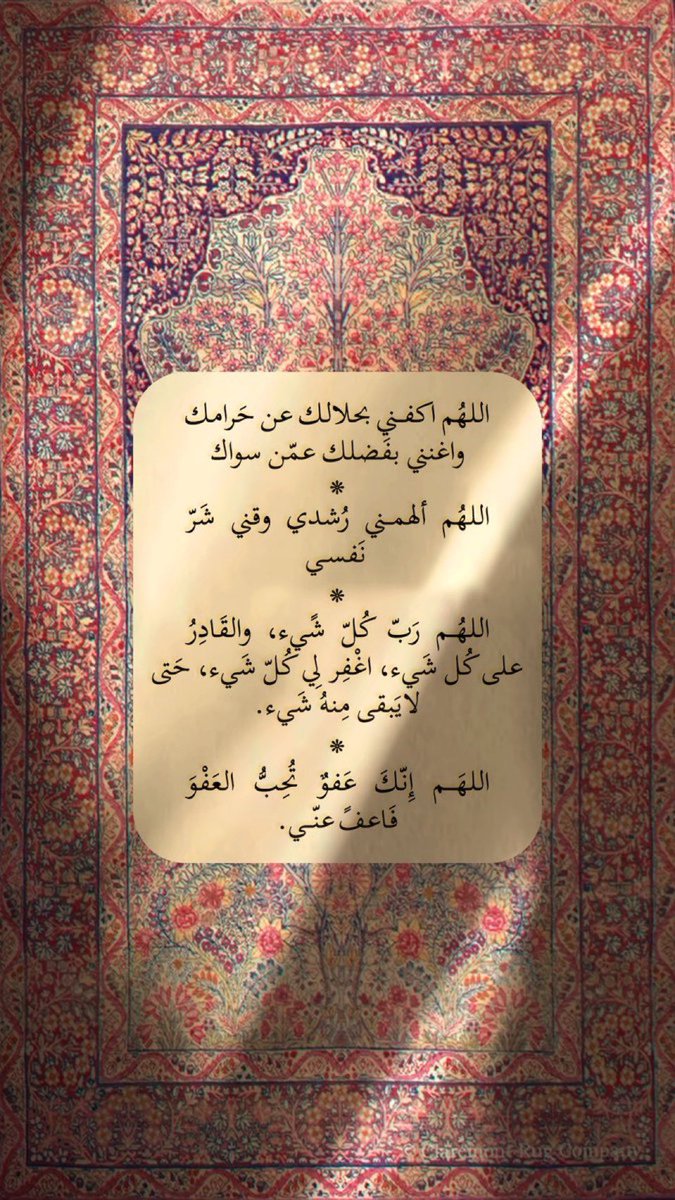 اللهُم اكفـني بحلالك عن حَرامك
واغنني بفَضلك عمّن سواك
❋
اللهُم ألهمـني رُشدي وقني شَرّ
نَفسـي
❋
اللهُـم رَبّ كُلّ شًيء، والقَادِرُ
على كُل شَيء، اغْفِر لِي كُلّ شَيء، حَتى
لايَبقى مِنهُ شَيء.
❋
اللهَـم إِنّكَ عَفوٌ تُحِبُّ العَفْوَ
فَاعفً عنّـي.
© Claremont Rug Company